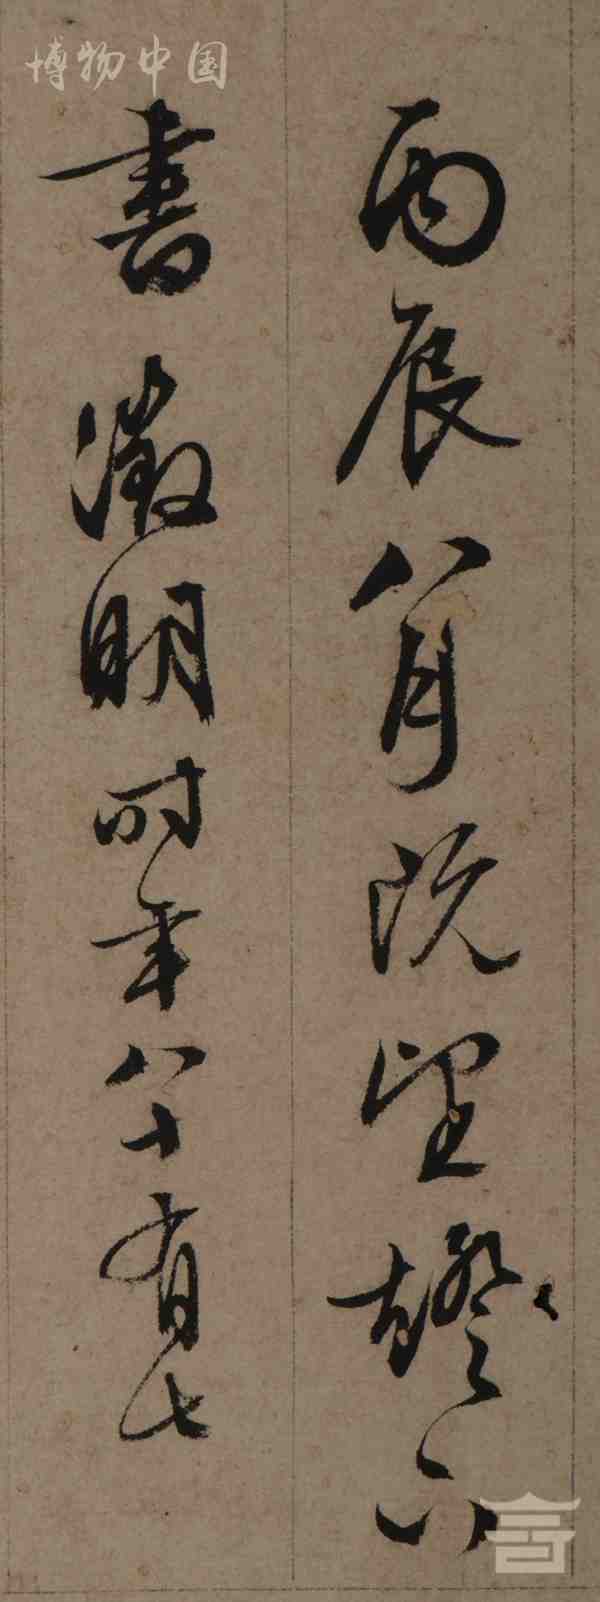 博物中国
丙辰八月既望鐙下
書 徵明时年八十有七